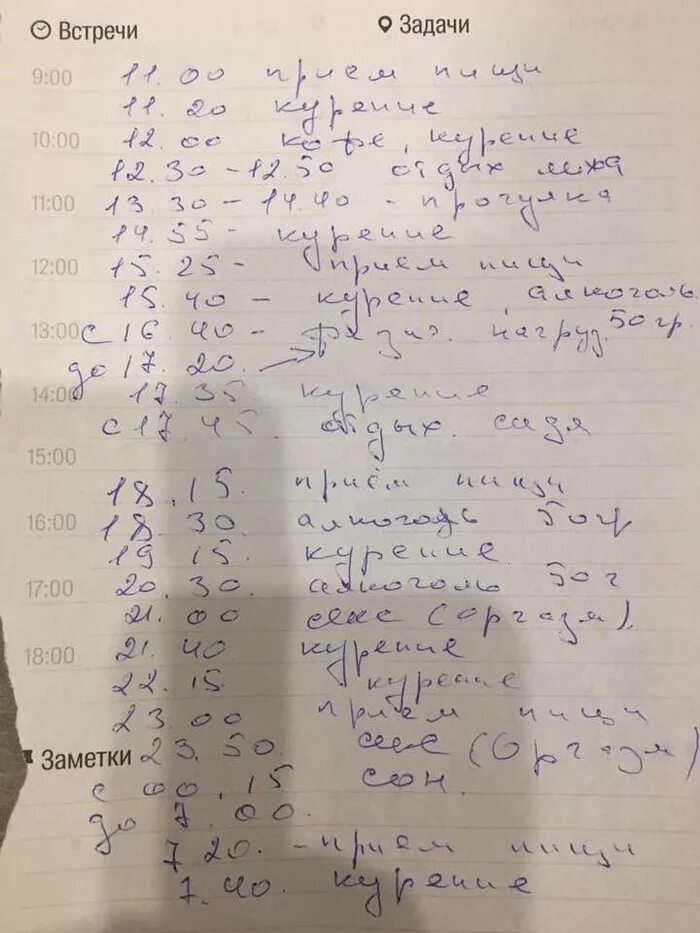 Встречи Задачи
9:00 11.00 прием пищи
11.20 курение
10:00 12.00 кофе, курение
12.30-12.50 отдых лежа
11:00 13.30-14.40-прогулка
14.55- курение
12:00 15.25- прием пищи
15.40- курение, алкоголь 50гр.
13:00 с 16.40- физ. нагруз.
до 17.20.
14:00 17.35 курение
с 17.45. отдых. сидя
15:00
18.15. приём пищи
16:00 18.30. алкоголь 50гр
19 15. курение.
17:00 20.30. алкоголь 50г
21.00 секс (оргазм).
18:00 21.40 курение
22.15 курение
23.00 прием пищи
Заметки 23.50. секс (Оргазм)
с 00.15 сон.
до 7.00.
7 20. -прием пищи
7.40. курение